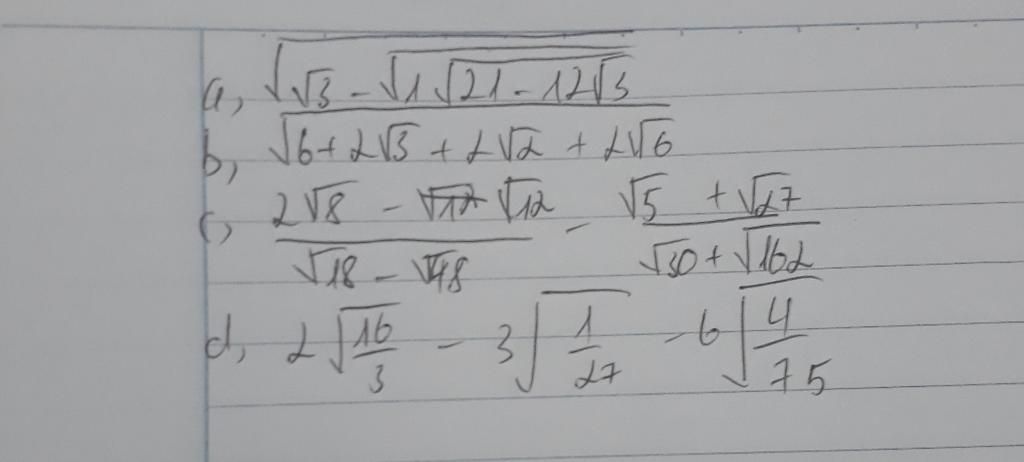 a, √(√3 - √(1√(21 - 12√3)))
b, √(6 + 2√3 + 2√2 + 2√6)
c, (2√8 - √12)/(√18 - √48) - (√5 + √27)/(√30 + √162)
d, 2√(16/3) - 3√(1/27) - 6√(4/75)